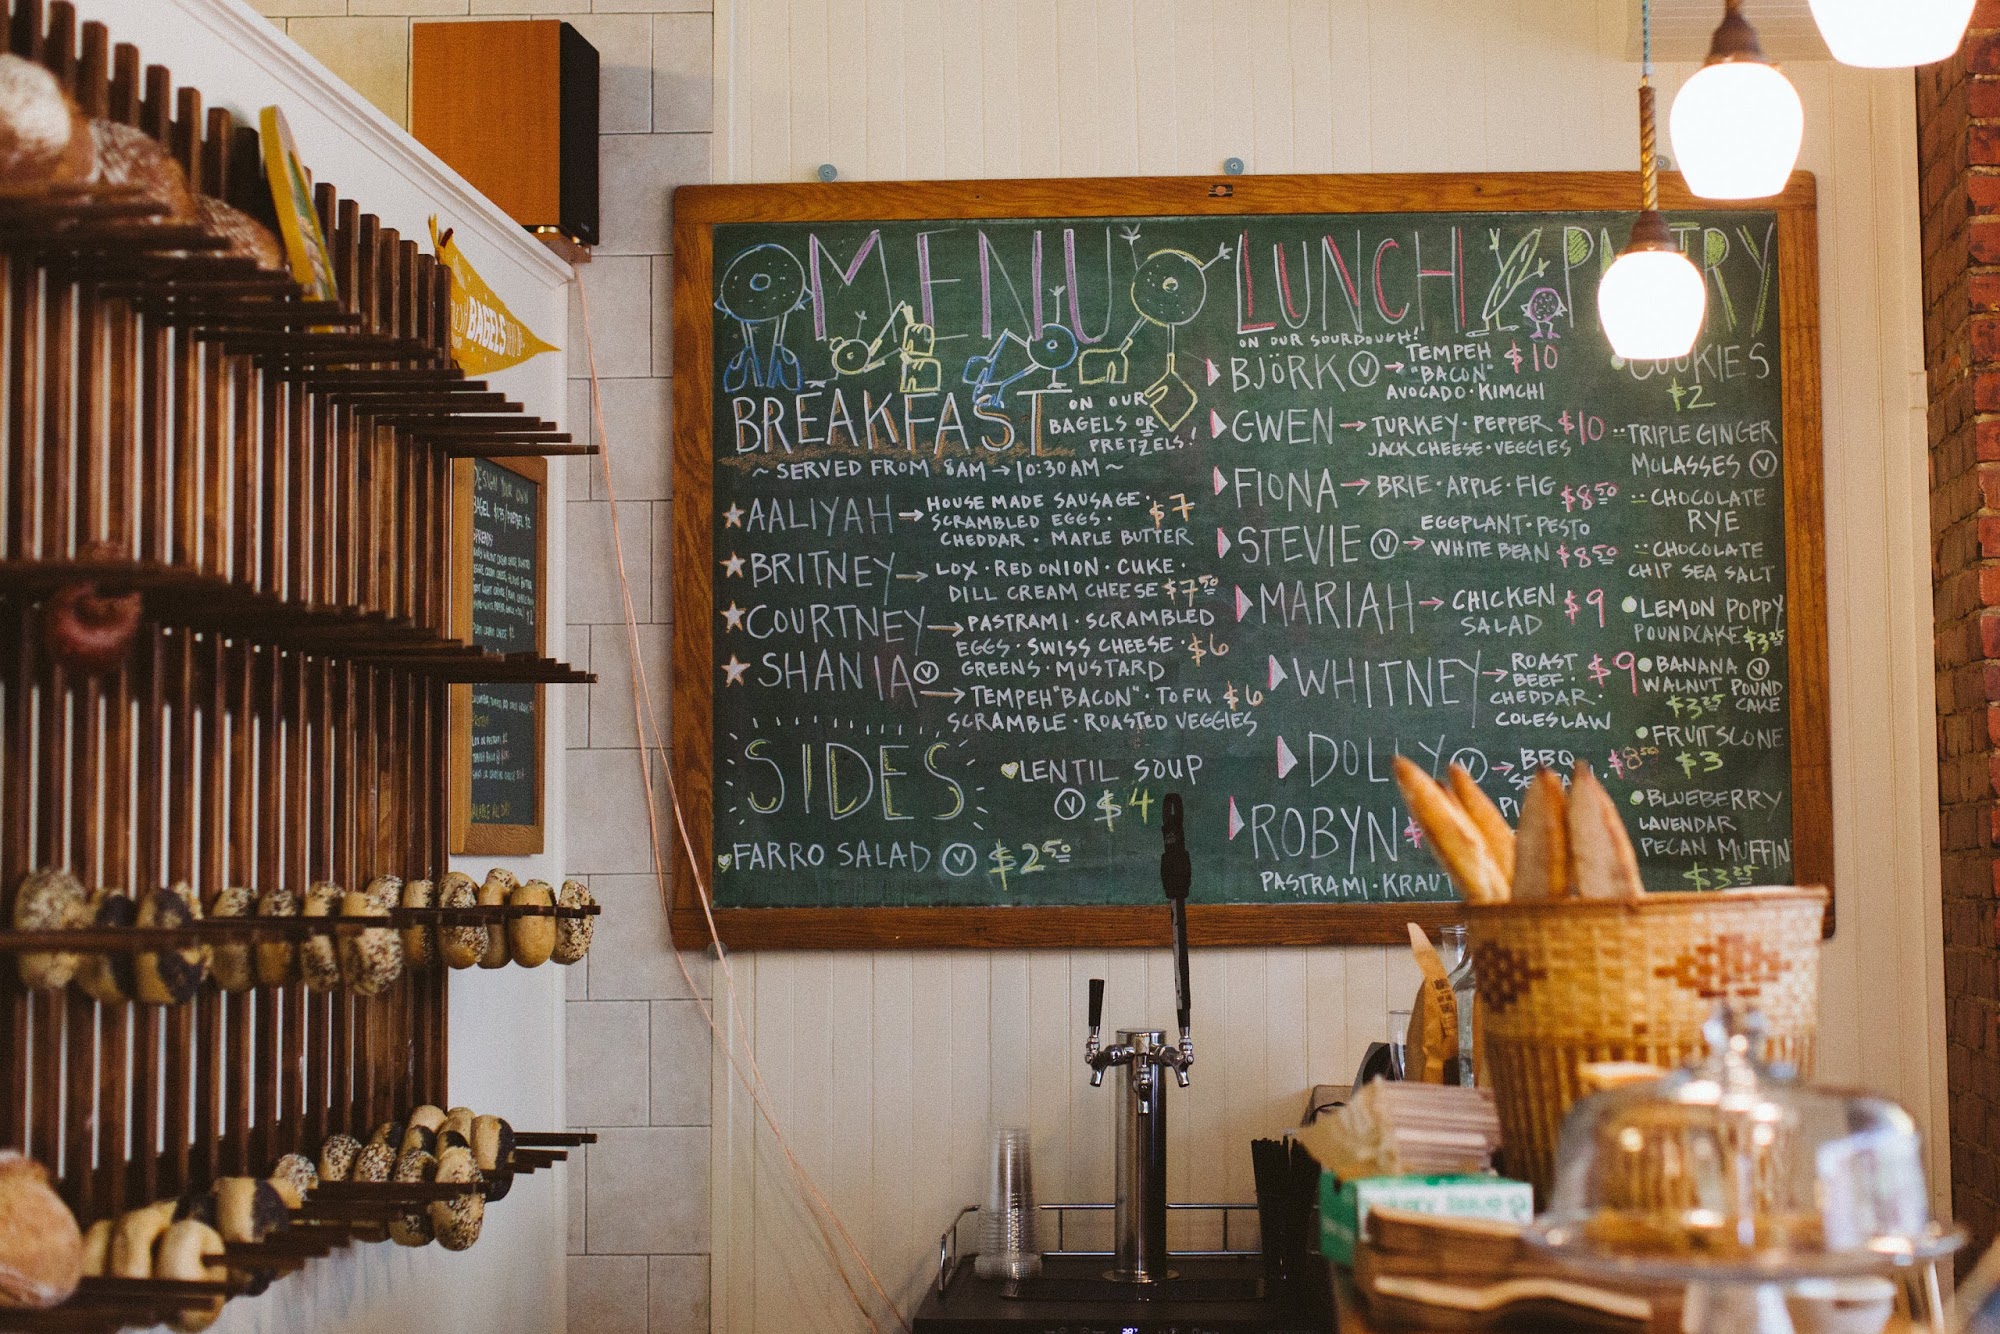 MENU
BREAKFAST
ON OUR
BAGELS OR
PRETZELS!
~ SERVED FROM 8AM → 10:30AM ~
AALIYAH → HOUSE MADE SAUSAGE · $7
SCRAMBLED EGGS ·
CHEDDAR · MAPLE BUTTER
BRITNEY → LOX · RED ONION · CUKE ·
DILL CREAM CHEESE $7.50
COURTNEY → PASTRAMI · SCRAMBLED
EGGS · SWISS CHEESE · $6
GREENS · MUSTARD
SHANIA Ⓥ → TEMPEH "BACON" · TOFU $6
SCRAMBLE · ROASTED VEGGIES
SIDES
LENTIL SOUP
Ⓥ $4
FARRO SALAD Ⓥ $2.50
LUNCH
ON OUR SOURDOUGH!
BJÖRK Ⓥ → TEMPEH $10
"BACON"
AVOCADO · KIMCHI
GWEN → TURKEY · PEPPER $10
JACK CHEESE · VEGGIES
FIONA → BRIE · APPLE · FIG $8.50
STEVIE Ⓥ → EGGPLANT · PESTO
WHITE BEAN $8.50
MARIAH → CHICKEN $9
SALAD
WHITNEY → ROAST $9
BEEF ·
CHEDDAR ·
COLESLAW
DOLLY Ⓥ → BBQ $8.50
ROBYN
PASTRAMI · KRAUT
COOKIES
$2
TRIPLE GINGER
MOLASSES Ⓥ
CHOCOLATE
RYE
CHOCOLATE
CHIP SEA SALT
LEMON POPPY
POUNDCAKE $3.25
BANANA Ⓥ
WALNUT POUND
$3.25 CAKE
FRUIT SCONE
$3
BLUEBERRY
LAVENDAR
PECAN MUFFIN
$3.25
BAGELS
DESIGN YOUR OWN